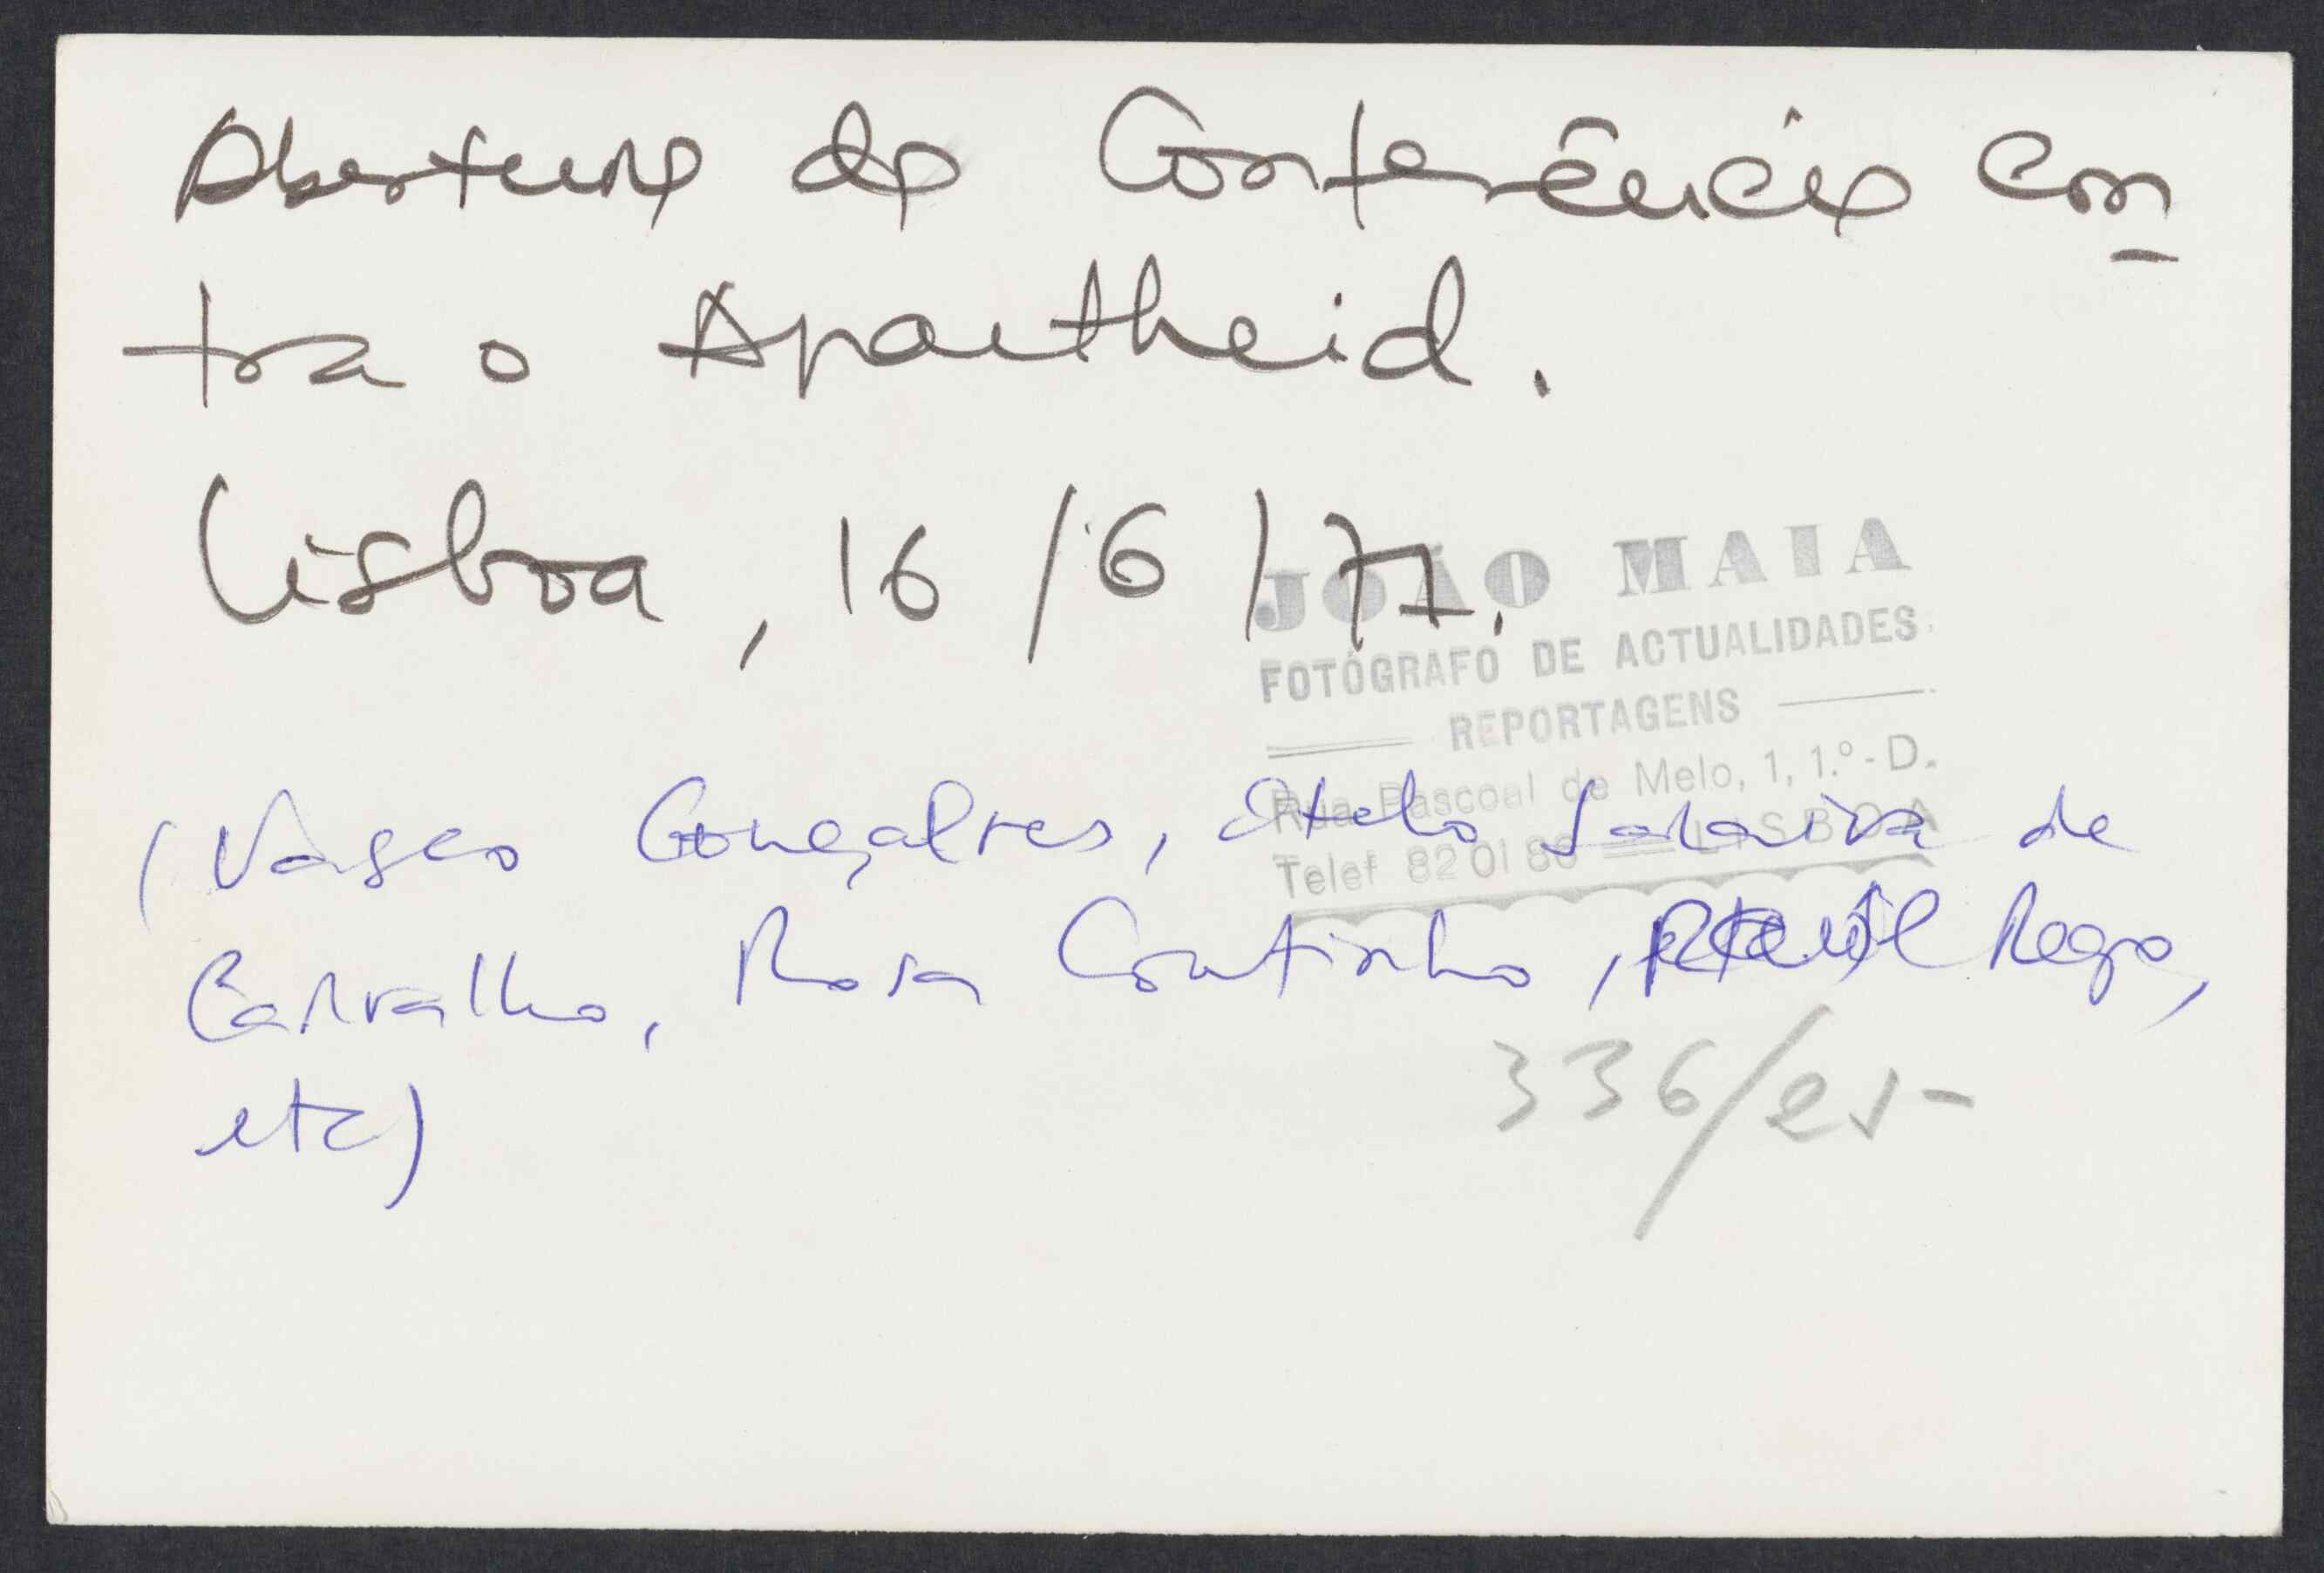 Abertura da Conferência con
tra o Apartheid.
Lisboa, 16/6/77.
JOÃO MAIA
FOTÓGRAFO DE ACTUALIDADES
REPORTAGENS
Rua Pascoal de Melo, 1, 1.º-D.
Telef 82 01 86 LISBOA
(Vasco Gonçalves, Otelo Saraiva de
Carvalho, Rosa Coutinho, Raúl Rego,
etc)
336/